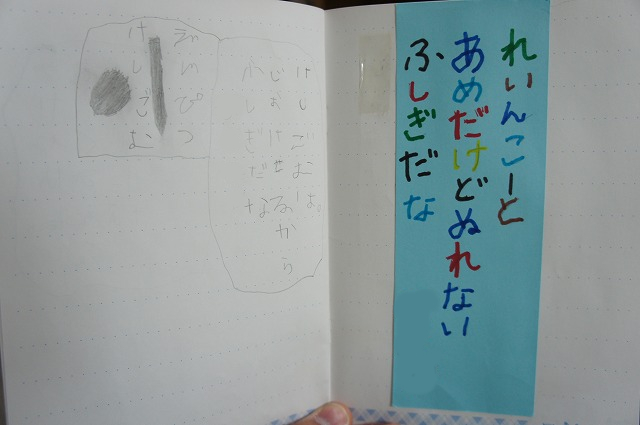 れいんこーと
あめだけどぬれない
ふしぎだな
けしごむは。
じおけせるから
ふしぎだな
えんぴつ
けしごむ